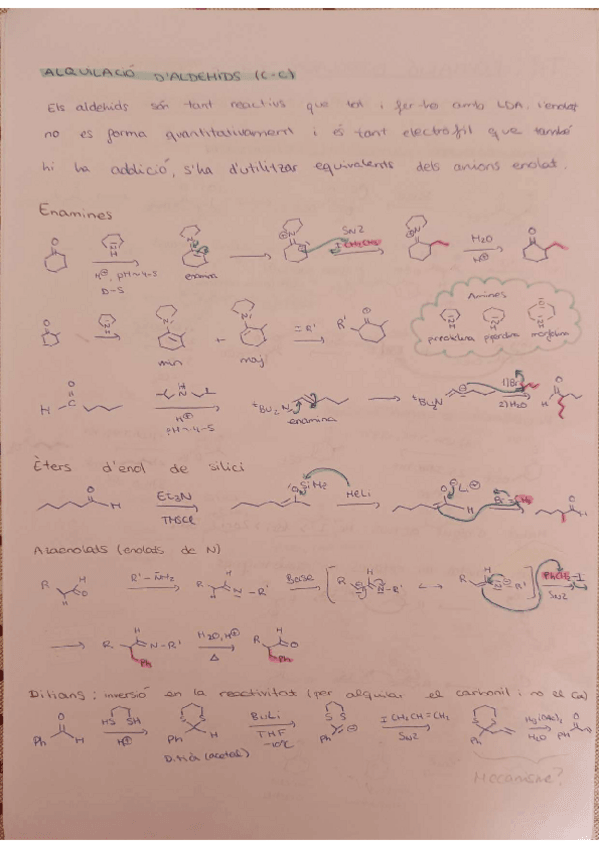 ALQUILACIÓ D'ALDEHIDS (C-C)
Els aldehids són tant reactius que tot i fer-ho amb LDA, l'enolat
no es forma quantitativament i és tant electròfil que també
hi ha addició, s'ha d'utilitzar equivalents dels anions enolat.
Enamines
H⊕, pH~4-5
D-S
enamina
SN2
ICH2CH3
H2O
H⊕
min
+
maj
R'
Amines
pirrolidina piperidina morfolina
H
O
H⊕
pH~4-5
ᵗBu2N
enamina
ᵗBu2N
1) Br
2) H2O
Èters d'enol de silici
O
H
Et3N
TMSCl
MeLi
Li⊕
Azaenolats (enolats de N)
R
H
O
R'-NH2
R
H
N-R'
Base
N-R'
PhCH2-I
SN2
R
H
N-R'
Ph
H2O, H⊕
Δ
R
H
O
Ph
Ditians: inversió en la reactivitat (per alquilar el carbonil i no el Cα)
Ph
O
H
HS SH
H⊕
Ph
S S
H
Ditià (acetal)
BuLi
THF
-10ºC
S S
Ph
ICH2CH=CH2
SN2
H2O
Ph
Mecanisme?